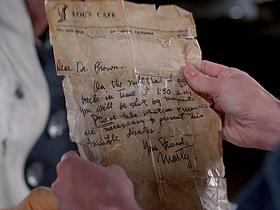 LOU'S CAFE
Dear Dr. Brown,
On the night that I go
back in time at 1:30 AM
you will be shot by
Please take whatever precautions
are necessary to prevent this
terrible disaster.
Your Friend,
Marty